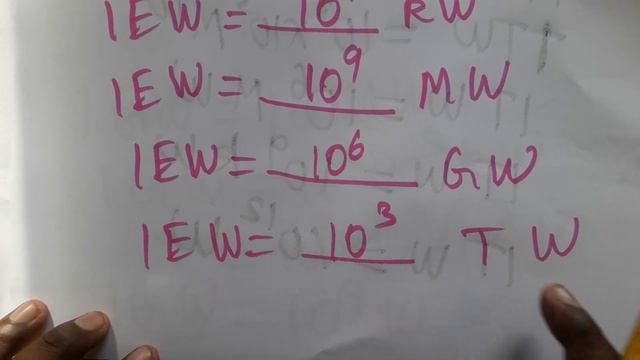 1EW = 10 KW
1EW = 10⁹ MW
1EW = 10⁶ GW
1EW = 10³ TW